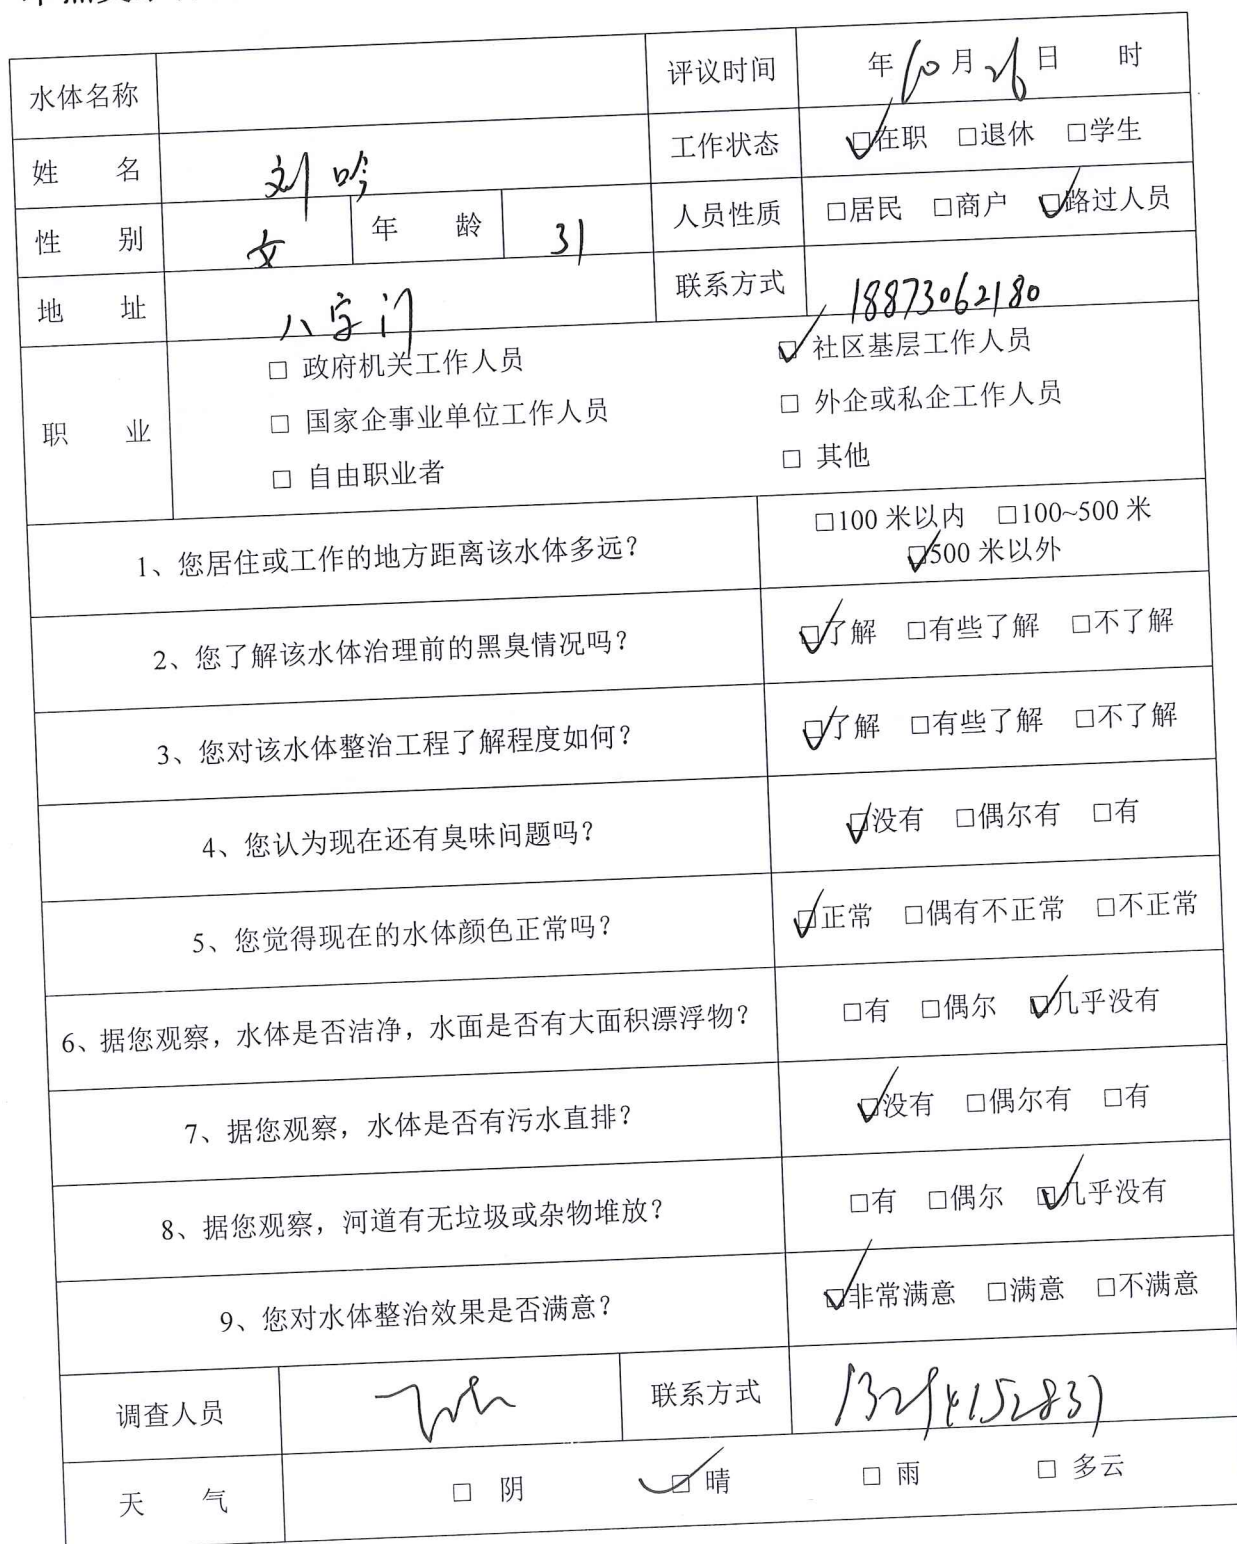 水体名称 评议时间 年10月26日 时
姓 名 刘吟 工作状态 ☑在职 □退休 □学生
性 别 女 年 龄 31 人员性质 □居民 □商户 ☑路过人员
地 址 八字门 联系方式 18873062180
职 业
□ 政府机关工作人员 ☑ 社区基层工作人员
□ 国家企事业单位工作人员 □ 外企或私企工作人员
□ 自由职业者 □ 其他
1、您居住或工作的地方距离该水体多远? □100 米以内 □100~500 米
☑500 米以外
2、您了解该水体治理前的黑臭情况吗? ☑了解 □有些了解 □不了解
3、您对该水体整治工程了解程度如何? ☑了解 □有些了解 □不了解
4、您认为现在还有臭味问题吗? ☑没有 □偶尔有 □有
5、您觉得现在的水体颜色正常吗? ☑正常 □偶有不正常 □不正常
6、据您观察，水体是否洁净，水面是否有大面积漂浮物? □有 □偶尔 ☑几乎没有
7、据您观察，水体是否有污水直排? ☑没有 □偶尔有 □有
8、据您观察，河道有无垃圾或杂物堆放? □有 □偶尔 ☑几乎没有
9、您对水体整治效果是否满意? ☑非常满意 □满意 □不满意
调查人员 联系方式
天 气 □ 阴 ☑ 晴 □ 雨 □ 多云